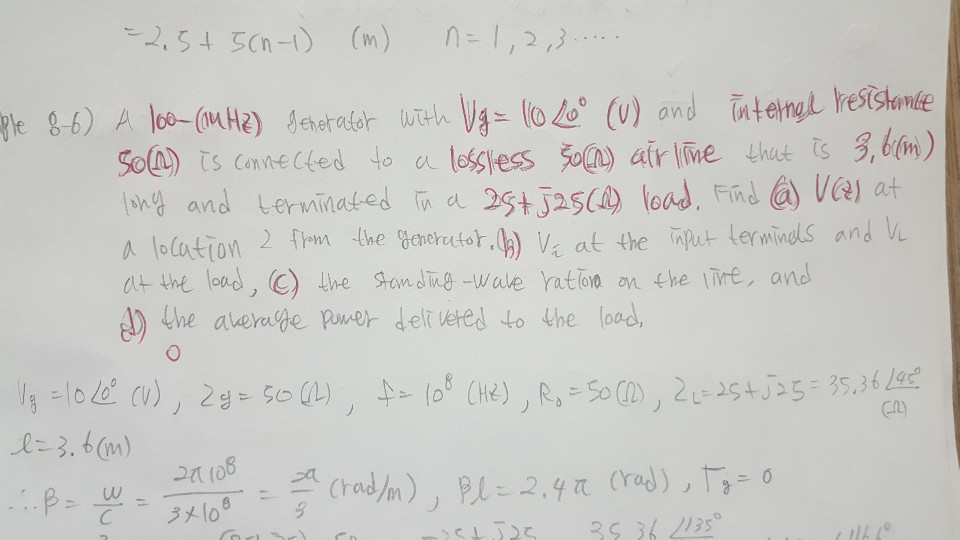 = 2.5 + 5(n-1) (m) n = 1, 2, 3 .....
ple 8-6) A 100-(MHz) generator with Vg = 10∠0° (V) and internal resistance
50(Ω) is connected to a lossless 50(Ω) air line that is 3,6(m)
long and terminated in a 25+j25(Ω) load. Find (a) V(z) at
a location z from the generator. (b) Vi at the input terminals and VL
at the load, (c) the standing-wave ration on the line, and
d) the average power delivered to the load.
Vg = 10∠0° (V), Zg = 50 (Ω), f = 10⁸ (Hz), R₀ = 50(Ω), ZL = 25+j25 = 35.36∠45° (Ω)
l = 3.6(m)
∴ β = w/c = 2π10⁸/3×10⁸ = 2π/3 (rad/m), βl = 2.4π (rad), Γg = 0
-25+j25 35.36 ∠135°